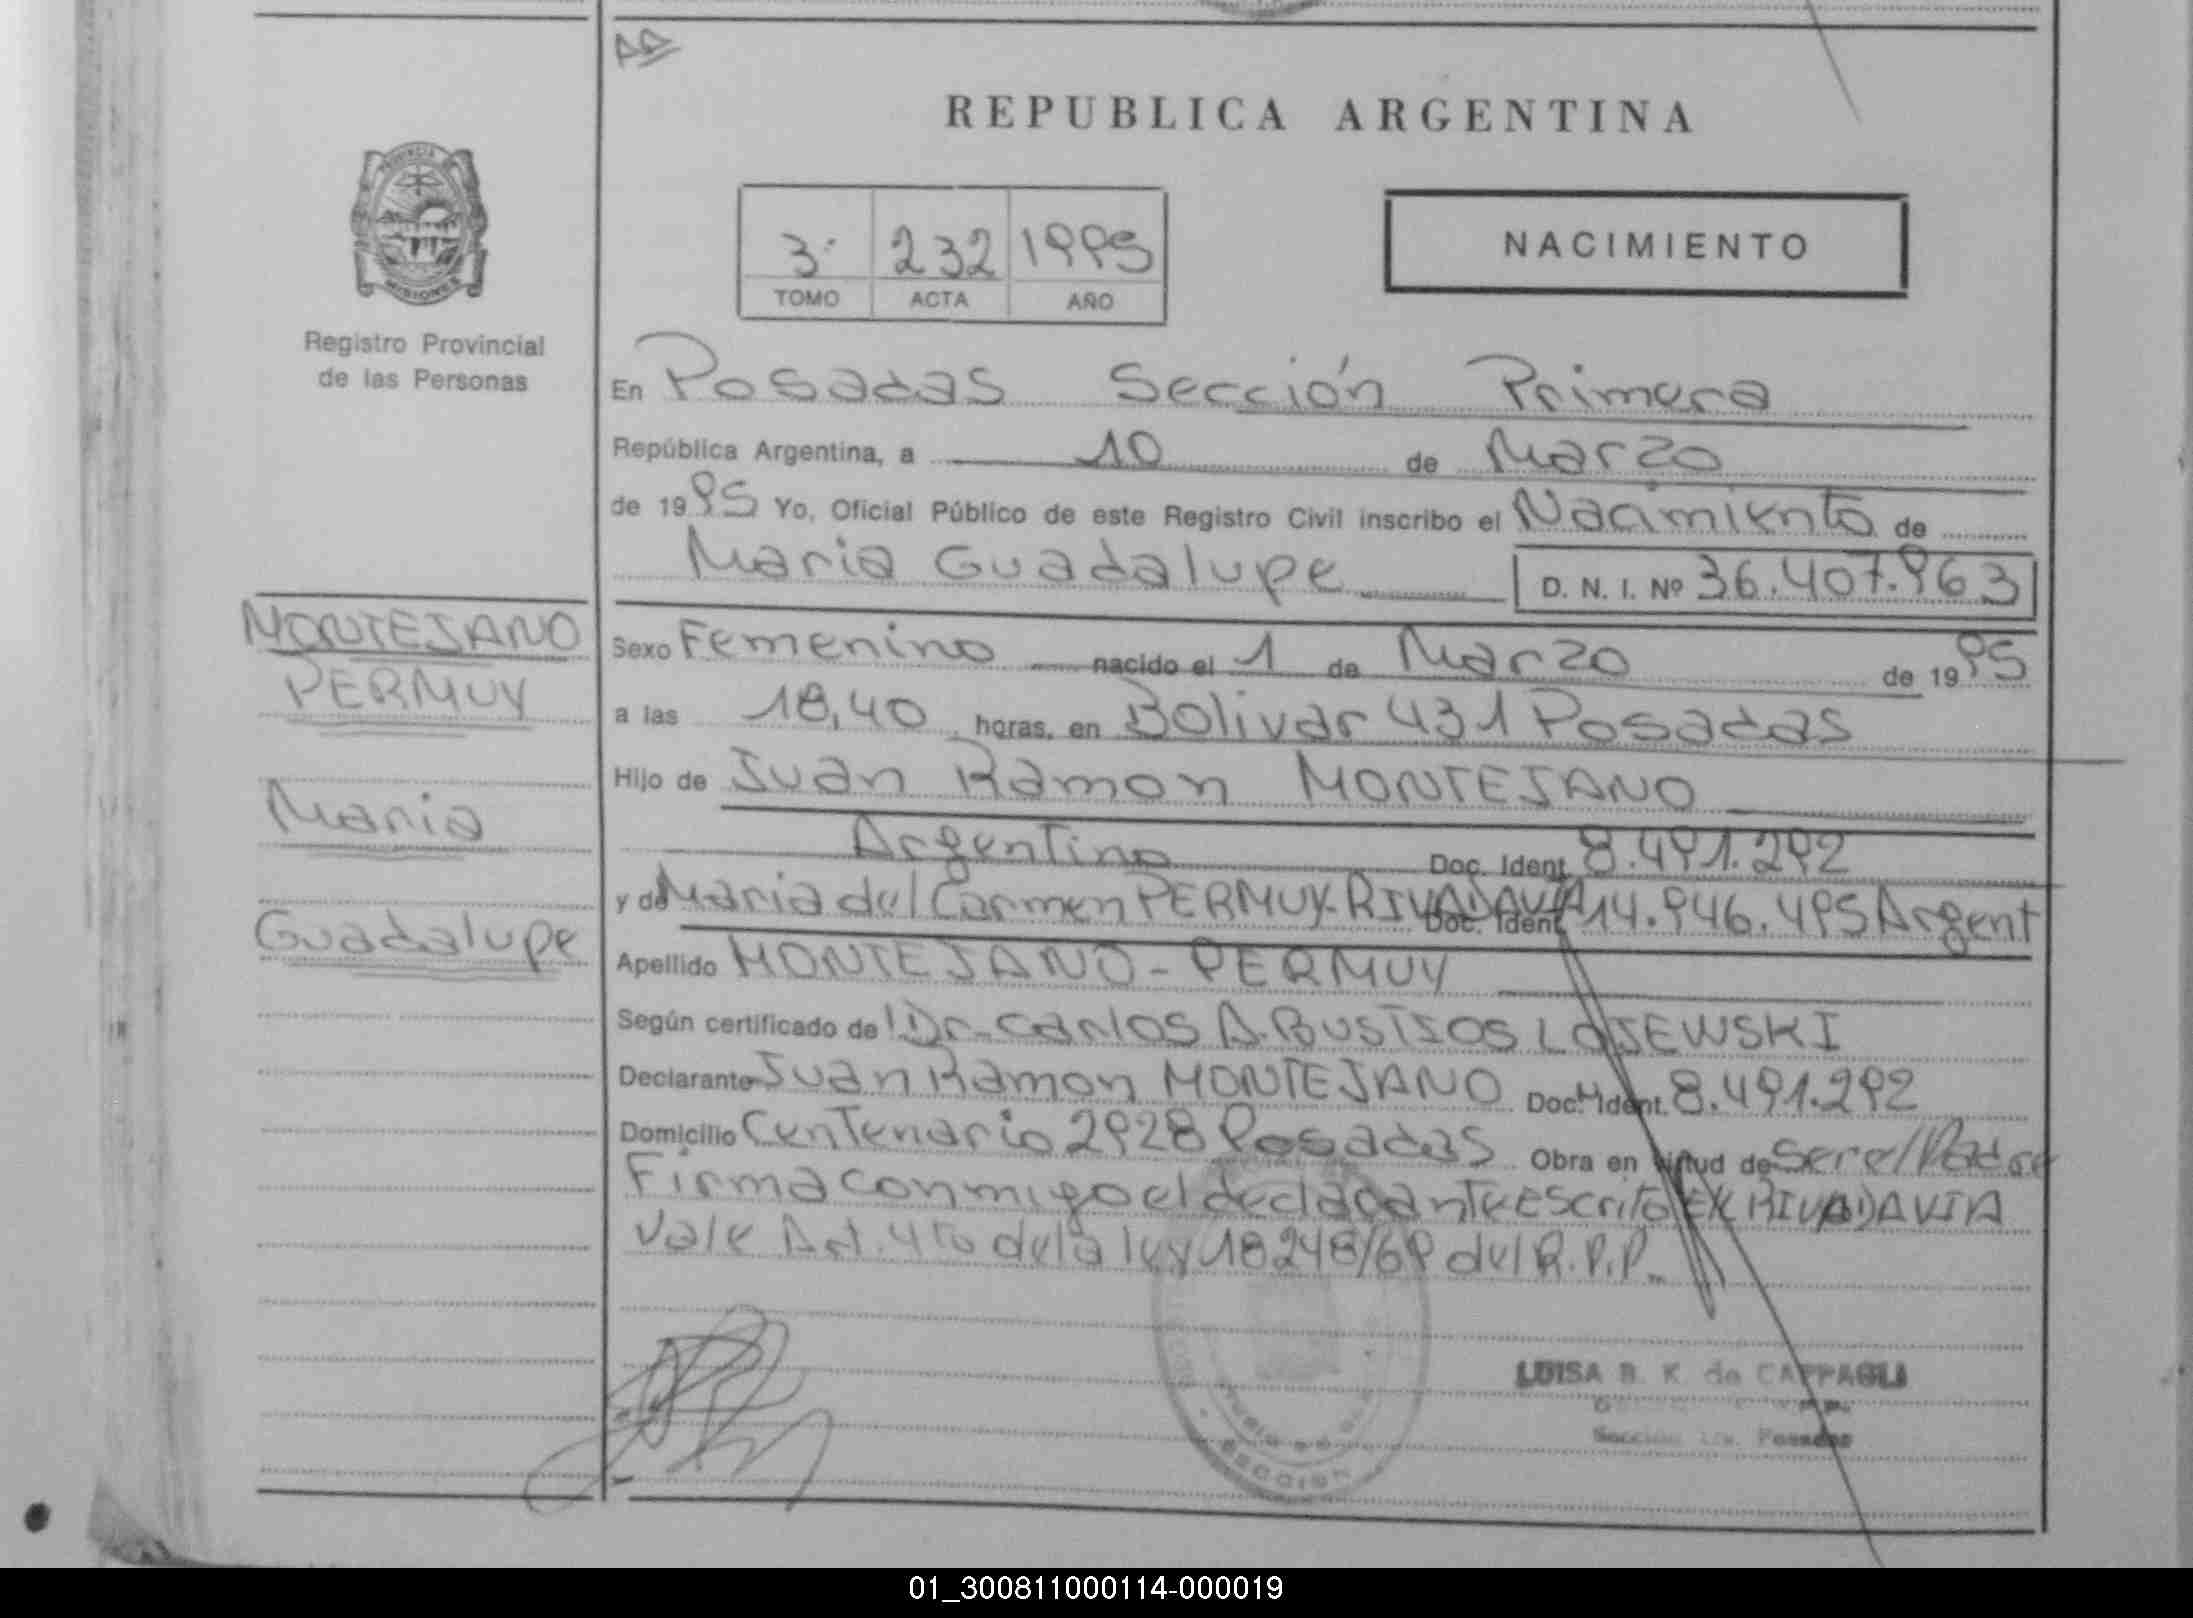 REPUBLICA ARGENTINA
PROVINCIA
MISIONES
Registro Provincial
de las Personas
3· 232 1995
TOMO ACTA AÑO
NACIMIENTO
En Posadas Sección Primera
República Argentina, a 10 de Marzo
de 1995 Yo, Oficial Público de este Registro Civil inscribo el Nacimiento de
Maria Guadalupe D. N. I. Nº 36.407.963
MONTEJANO
PERMUY
Maria
Guadalupe
Sexo Femenino nacido el 1 de Marzo de 1995
a las 18,40 horas, en Bolivar 431 Posadas
Hijo de Juan Ramon MONTEJANO
Argentino Doc. Ident. 8.491.292
y de Maria del Carmen PERMUY-RIVADAVIA Doc. Ident. 14.946.495 Argent
Apellido MONTEJANO - PERMUY
Según certificado de Dr. Carlos A. BUSTIOS LOJEWSKI
Declarante Juan Ramon MONTEJANO Doc. Ident. 8.491.292
Domicilio Centenario 2928 Posadas Obra en virtud de Ser el Padre
Firma conmigo el declarante Escrito EX RIVADAVIA
Vale Art. 4to de la ley 18248/69 del R.P.P.
LUISA B. K. de CAPPAGLI
Sección 1ra. Posadas
SECCION
01_300811000114-000019